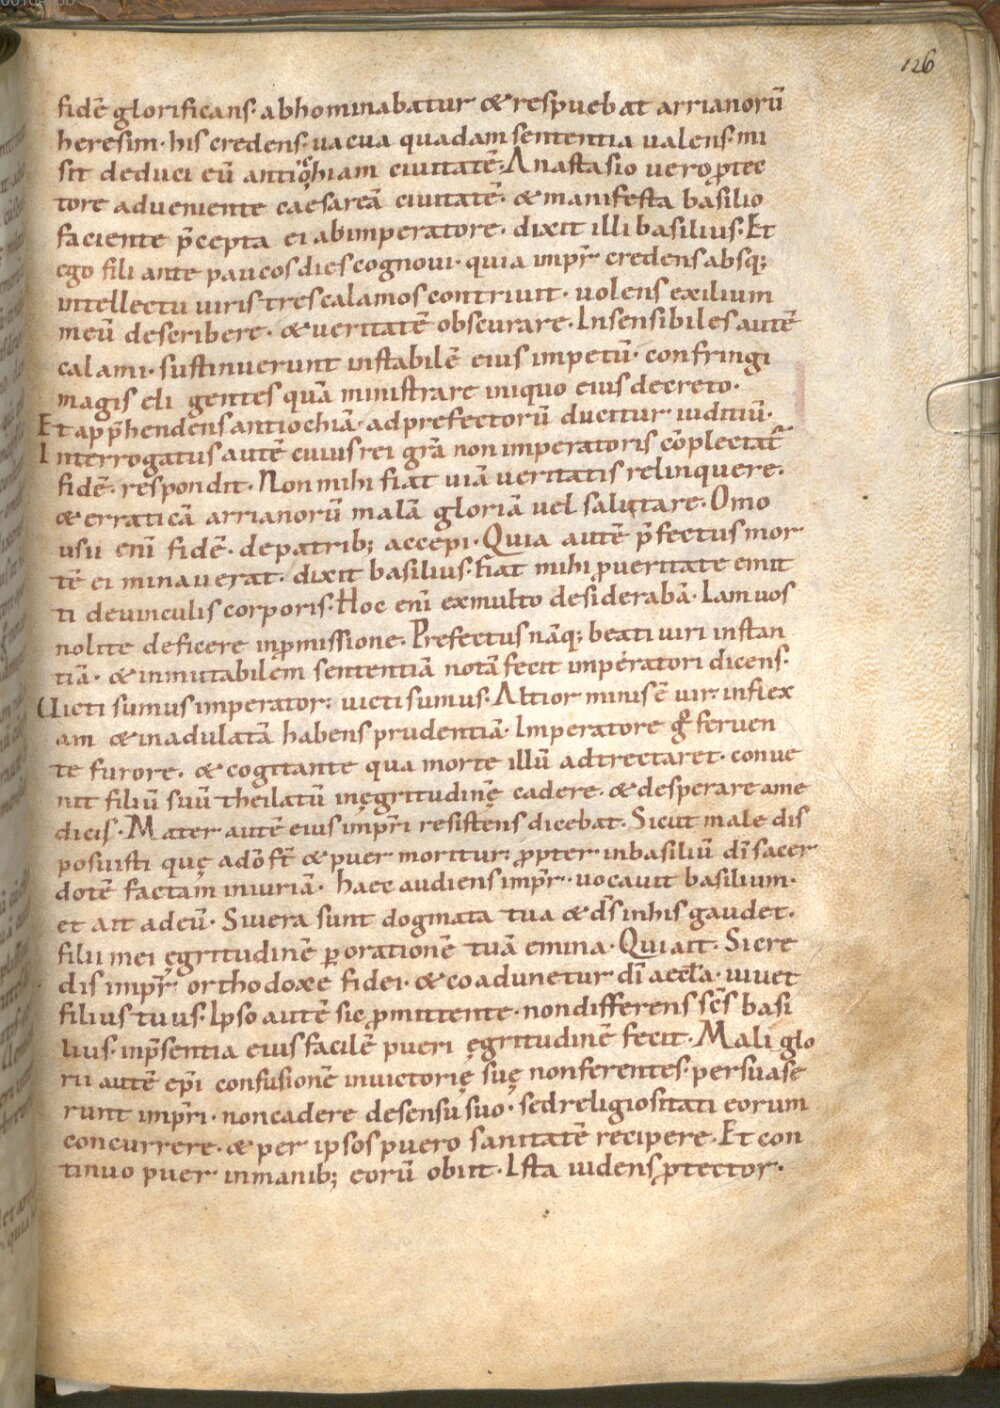 126
fidē glorificans· abhominabatur & respuebat arrianorū
heresim· his credens· uacua quadam sententia ualens· mi
sit deduci eū antiochiam ciuitatē· Anastasio uero ꝓtec
tore adueniente caesareā ciuitatē· & manifesta basilio
faciente p̄cepta ei abimperatore· dixit illi basilius· Et
ego fili ante paucos dies cognoui· quia impr̄ credens absq;
intellectu uiris tres calamos contriuit· uolens exilium
meū describere· & ueritatē obscurare· Insensibiles autē
calami· sustinuerunt instabilē eius impetū· confringi
magis eligentes quā ministrare iniquo eius decreto·
Et app̄hendens antiochiā· ad prefectorū ducitur iuditiū·
Interrogatus autē cuius rei grā non imperatoris cōplectat᷑
fidē· respondit· Non mihi fiat uiā ueritatis relinquere·
& erraticā arrianorū malā gloriā uel salutare· Omo
usii enī fidē· de patrib; accepi· Quia autē p̄fectus mor
tē ei minauerat· dixit basilius· fiat mihi ꝓ ueritate emit
ti deuinculis corporis· Hoc enī exmulto desiderabā· Iam uos
nolite deficere inꝓmissione· Prefectus nāq; beati uiri instan
tiā· & inmutabilem sententiā notā fecit imperatori dicens·
Uicti sumus imperator· uicti sumus· Altior minis ē uir· inflex
am & inadulatā habens prudentiā· Imperatore g̊ feruen
te furore· & cogitante qua morte illū adtrectaret· conue
nit filiū suū theilatū inęgritudinē cadere· & desperare ame
dicis· Mater autē eius imp̄ri resistens dicebat· Sicut male dis
posuisti quę adō st̄ & puer moritur· ꝓpter inbasiliū dī sacer
dotē factam iniuriā· haec audiens impr̄· uocauit basilium·
et ait ad eū· Si uera sunt dogmata tua & d̄s inhis gaudet·
filii mei ęgritudinē ꝑ orationē tuā emina· Qui ait· Si cre
dis impr̄· orthodoxe fidei· & coadunetur dī aecl̄a· uiuet
filius tuus· Ipso autē sic ꝓmittente· non differens sc̄s basi
lius· inp̄sentia eius facilē pueri ęgritudinē fecit· Mali glo
rii autē epī confusionē inuictorię suę non ferentes· persuase
runt imp̄ri· non cadere desensu suo· sed religiositati eorum
concurrere· & per ipsos puero sanitatē recipere· Et con
tinuo puer inmanib; eorū obiit· Ista uidens ꝓtector·